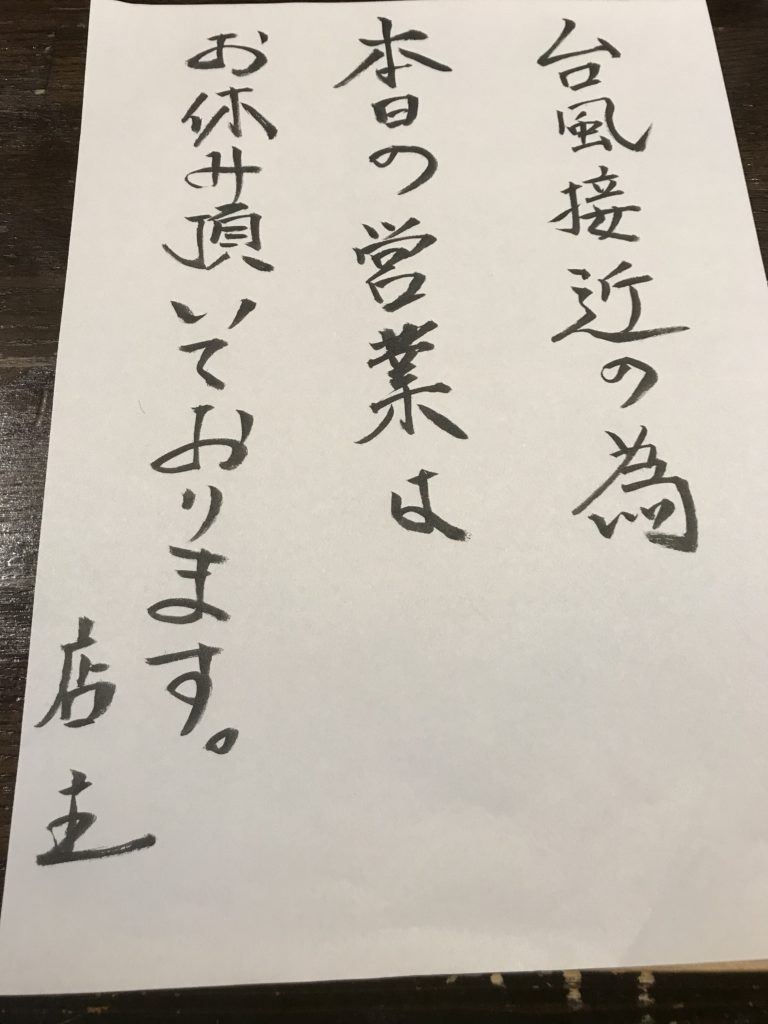 台風接近の為
本日の営業は
お休み頂いております。
店主